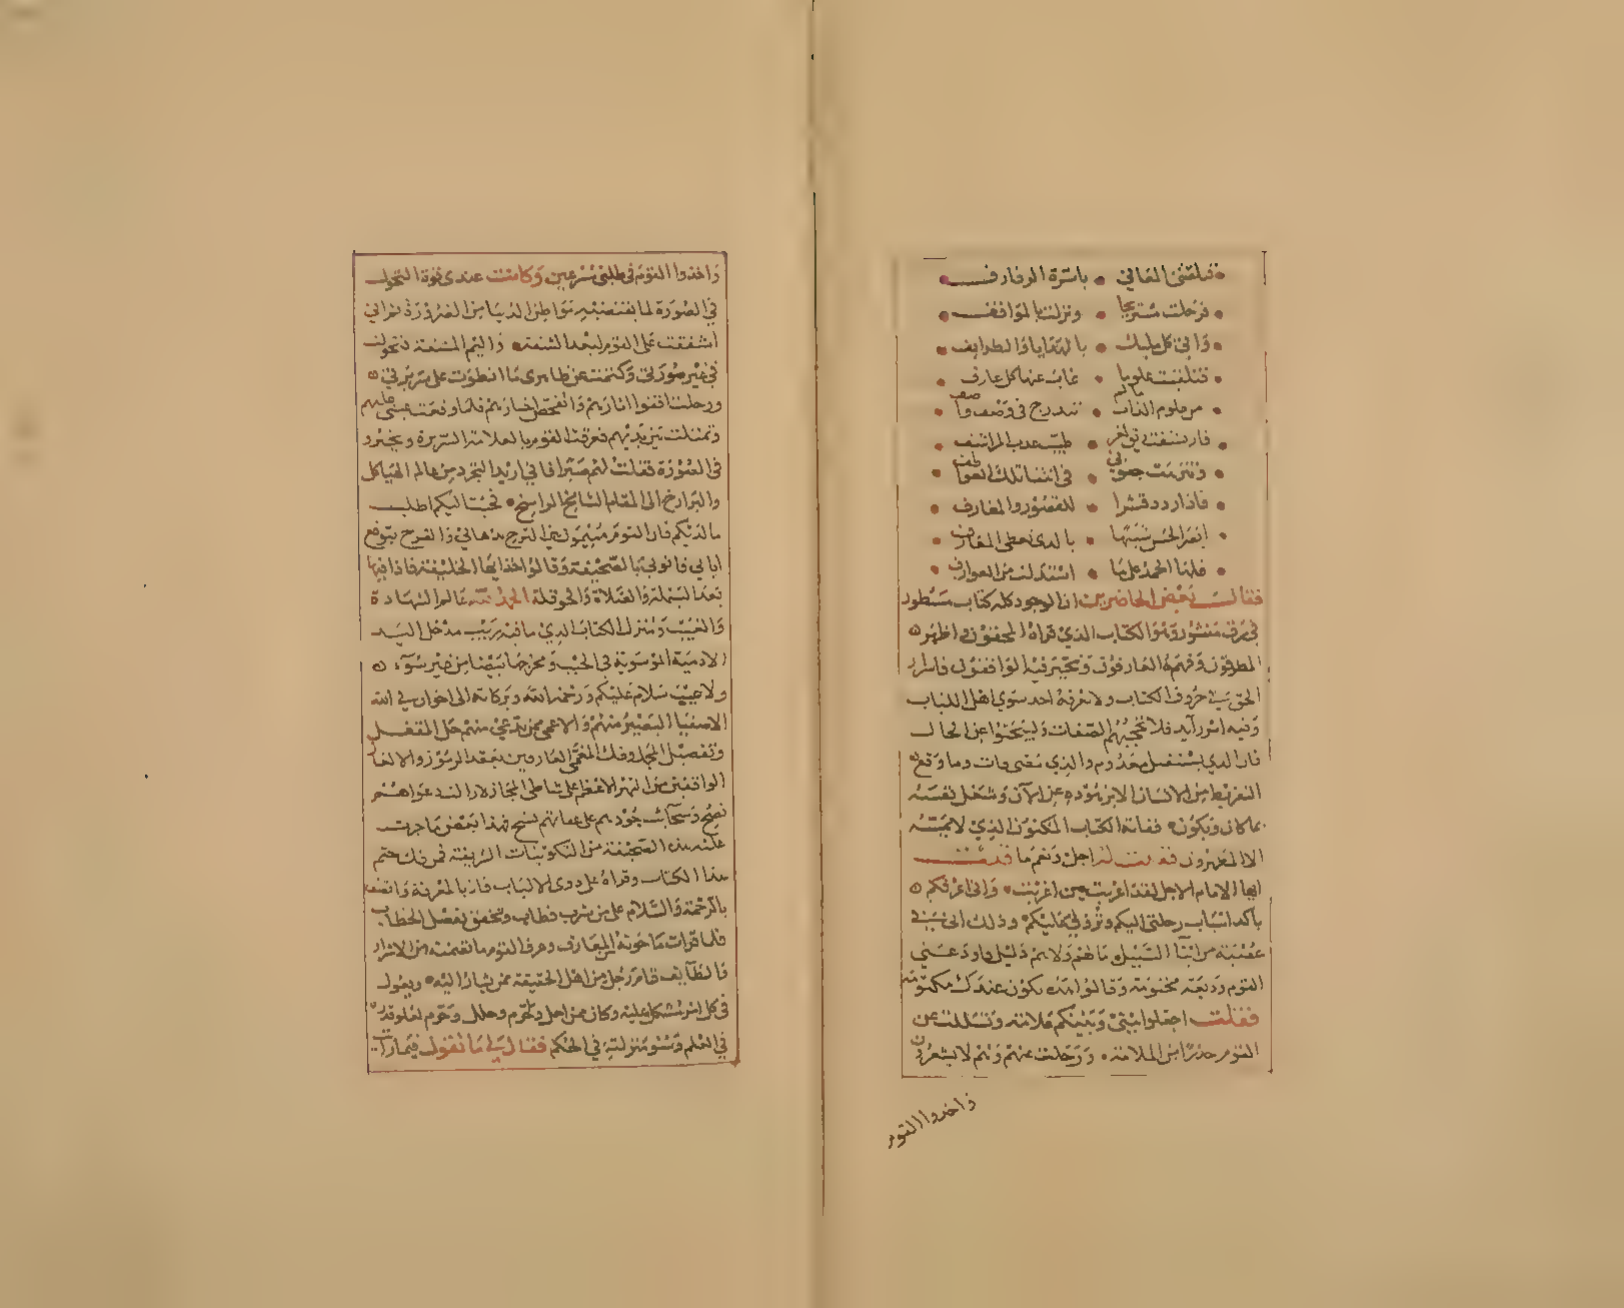 فتلقتني المعاني • باسرة الرفارف
فرحلت مستريحا • ونزلت بالمواقف
واتى كل مليك • بالهدايا والطرايف
فتلقنت علوما • غاب عنها كل عارف
من علوم الذات مالم • تندرج في وصف واصف
فارتشفت ثغر • طيب عذب المراشف
وتنزهت • في اثنا تلك العواطف
فاذا ردد قشرا • للقصور والمعارف
انعم الحسن شبها • بالذي تعطى المعارف
فلنا الحمد على ما • استفدلت من العوارف
فقالت بعض الحاضرين ان الوجود كله كتاب مسطور
في رق منشور وهو الكتاب الذي قراه المحققون واظهره
المطرقون وفهمه العارفون وتحير فيه الواقفون فاسرار
الحق في حروف الكتاب ولا يعرفه احد سوى اهل اللباب
وفيه اسرر آيه فلا تحجبهم الصفات وليبحثوا عن الحال
فان الذي يستقبل معدوم والذي مضى فات وما وقع
التفريط من الانسان الا بزهوده عن الآن وشغل نفسه
بما كان ويكون ففاته الكتاب المكنون الذي لا يمسه
الا المطهرون فقلت له اجل ونعم ما
ايها الامام الاجل لقد اغربت حين اعربت • واني اعرفكم
باكد اسباب رحلتي اليكم ونزولي عليكم وذلك اني
عقبة من السبيل ما لهم ولا بهم دليل واودعني
القوم وديعة مختومة وقالوا هذه تكون عندك مكتومة
فقلت اجعلوا بيني وبينكم علامة وتسللت عن
القوم حذرا من الملامة • ورحلت عنهم وهم لا يشعرون
واخذوا القوم
واخذوا القوم في طلبي مسرعين وكانت عندي قوة التحول
في الصورة لما يقتضيه مواطن الدنيا من الضرورة ثم اني
اشفقت على القوم لبعد الشقة • واليم المشقة فتحولت
في غير صورتي وكتمت عن ظاهري ما انطوت على سريرتي
ورحلت اقفوا اثارهم واتفحص اخبارهم فلما وقعت عيني عليهم
وتمثلت بين يديهم فعرفت القوم بالعلامة السريرة وتحيروا
في الصورة فقلت لهم صبرا فاني اريد التجرد من عالم الهياكل
والبرازخ الى المقام الشامخ الراسخ • فجئت اليكم اطلب
ما لديكم فان القوم مني الترح بذهابي والفرح بتوقع
ايابي فاتوني بالصحيفة وقالوا خذ ايها الخليفة فاذا فيها
بعد البسملة والصلاة والحوقلة الحمد لله عالم الشهادة
والغيب ومنزل الكتاب الذي ما فيه ريب مدخل اليد
الادمية الموسوية في الجيب ومخرجها بيضا من غير سوء
ولا عيب سلام عليكم ورحمة الله وبركاته الى اخوان في الله
الاصفيا البصير منهم والاعمى ممن يدعي منهم حل المقفل
وتفصيل المجمل وفك المعمى العارفين بعقد الرموز والالغاز
الواقفين من النهر الاعظم على شاطئ المجاز لازالت دعواهم
نصح وسحائب جودهم على عفاتهم تسح فهذا بعض ما جرت
عليه هذه الصحيفة من التكوينات الشريفة فمن فك ختم
هذا الكتاب وقراه على ذوى الالباب فاز بالمعرفة واتصف
بالرحمة والسلام على من شرب فطاب وتحقق بفصل الخطاب
فلما قرات ما حوته المعارف وعرف القوم ما تضمنته من الاسرار
واللطايف قام رجل من اهل الحقيقة ممن يشار اليه • ويعول
في كل امر مشكل عليه وكان ممن احل وحرم وحلل وحرم لعلو قدره
في العلم وسمو منزلته في الحكم فقال لي ما تقول فيما رأت